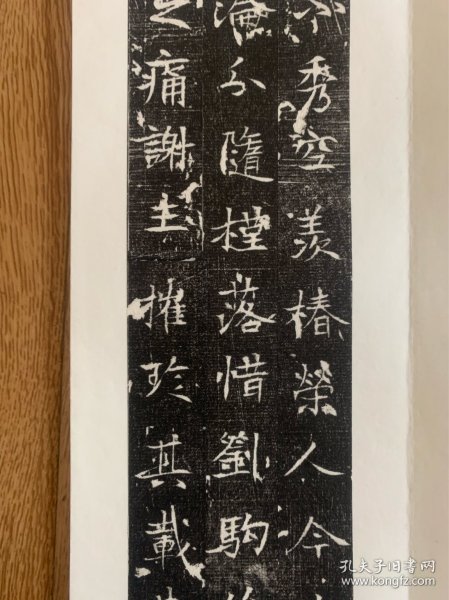 不秀空羨椿榮人今
淪分隨槿落惜劉駒
之痛謝生摧玲其載
孔夫子旧书网
www.kongfz.com